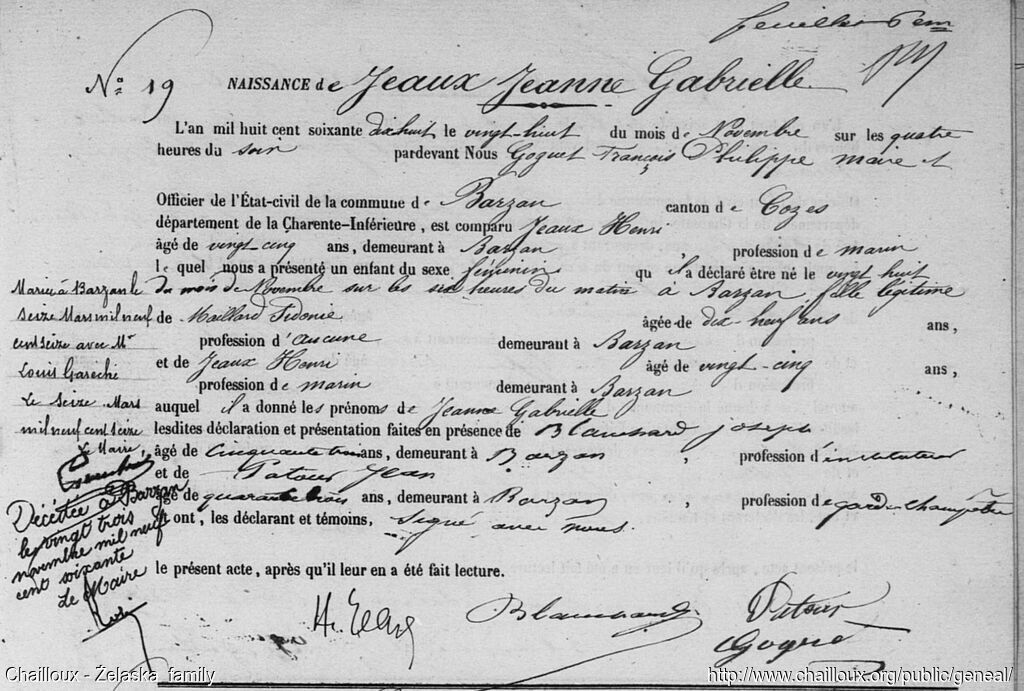 feuillet
N° 19 NAISSANCE de Jeaux Jeanne Gabrielle
L'an mil huit cent soixante dix huit le vingt-huit du mois de Novembre sur les quatre
heures du soir pardevant Nous Goguet François Philippe maire et
Officier de l'État-civil de la commune de Barzan canton de Cozes
département de la Charente-Inférieure, est comparu Jeaux Henri
âgé de vingt cinq ans, demeurant à Barzan, profession de marin
lequel nous a présenté un enfant du sexe féminin qu'il a déclaré être né le vingt huit
du mois de Novembre sur les six heures du matin à Barzan fille légitime
de Maillard Sidonie âgée de dix-neuf ans ans,
profession d'aucune demeurant à Barzan
et de Jeaux Henri âgé de vingt-cinq ans,
profession de marin demeurant à Barzan
auquel il a donné les prénoms de Jeanne Gabrielle
lesdites déclaration et présentation faites en présence de Blanchard Joseph
âgé de Cinquante trois ans, demeurant à Barzan, profession d'instituteur
et de Patour Jean
âgé de quarante trois ans, demeurant à Barzan, profession de garde champêtre
et ont, les déclarant et témoins, signé avec nous
le présent acte, après qu'il leur en a été fait lecture.
Mariée à Barzan le
seize Mars mil neuf
cent seize avec Mr
Louis Gareché
Le Seize Mars
mil neuf cent seize
Le Maire,
Décédée à Barzan
le vingt trois
novembre mil neuf
cent soixante
Le Maire
H. Jeaux Blanchard Patour
Goguet
Chailloux - Żelaska family http://www.chailloux.org/public/geneal/